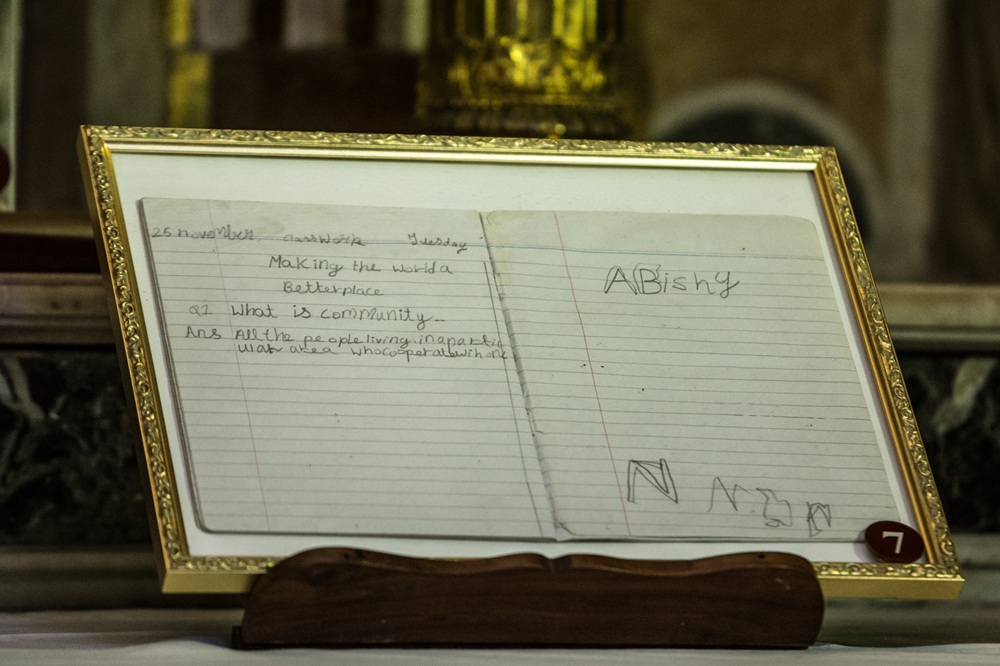 25 november classwork Tuesday
Making the world a
Better place
Q1 What is community
Ans All the people living in a partic
ular area who cooperate with one
ABishy
N N N
7